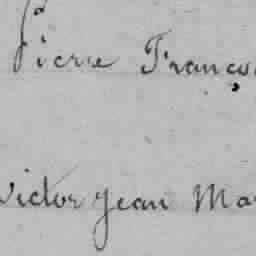 Pierre Franço
Victor Jean Ma